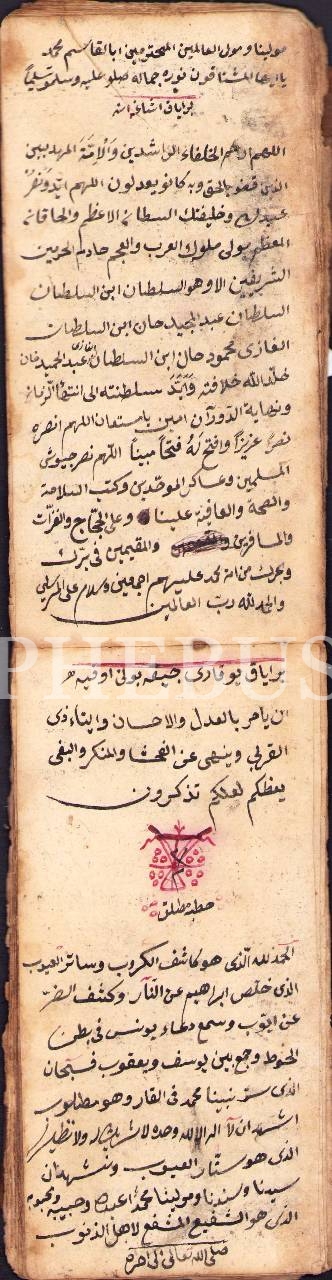 مولينا ومولى العالمين المحترمين ابا القاسم محمد
يا ايها المشتاقون بنوره جماله صلو عليه وسلمو تسليماً
بر اياق اشاغيه انه
اللهم ارض الخلفاء الراشدين والائمة المهديين
الذين قضو بالحق وبه كانو يعدلون اللهم ايد ونصر
عبدك وخليفتك السلطان الاعظم والخاقان
المعظم مولى ملوك العرب والعجم خادم الحرمين
الشريفين الا وهو السلطان ابن السلطان
السلطان عبد المجيد خان ابن السلطان
الغازى محمود خان ابن السلطان الغازى عبد الحميد خان
خلد الله خلافته وابّد سلطنته الى انتهاء الزمان
ونهاية الدوران امين يا مستعان اللهم انصره
نصراً عزيزاً وافتح له فتحاً مبيناً اللهم نصر جيوش
المسلمين وعساكر الموحدين وكتب السلامة
والصحة والعافية علينا وعلى الحجاج والغزات
والمسافرين والمقيمين فى برّك
وبحرك من امة محمد عليهم اجمعين وسلام على المرسلين
والحمد لله رب العالمين
بر اياق يوقارى جيقه بونى اوقيه
ان الله يامر بالعدل والاحسان وايتاء ذى
القربى وينهى عن الفحشاء والمنكر والبغى
يعظكم لعلكم تذكرون
خطبه مطلق
الحمد لله الذى هو كاشف الكروب وساتر العيوب
الذى خلص ابراهيم عن النار وكشف الضر
عن ايوب وسمع دعاء يونس فى بطن
الحوط وجمع بين يوسف ويعقوب فسبحان
الذى ستر نبينا محمد فى الغار وهو مطلوب
اشهد ان لا اله الا الله وحده لا شريك له ولا نظير له
الذى هو ستار العيوب ونشهد ان
سيدنا وسندنا ومولينا محمداً عبده وحبيبه ومحبوبه
الذى هو الشفيع المشفع لاهل الذنوب
صلى الله تعالى الى اخره
PHEBUS